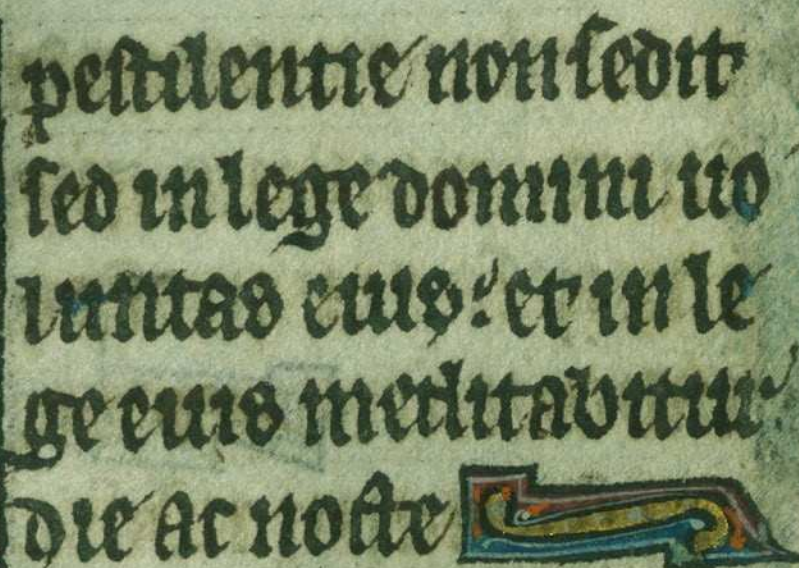 pestilentie non sedit
sed in lege domini uo
luntas eius: et in le
ge eius meditabitur
die ac nocte